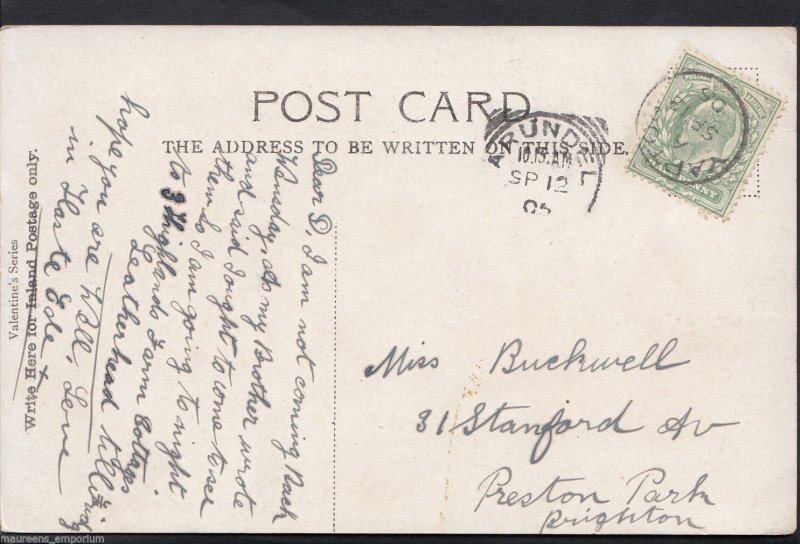 POST CARD
THE ADDRESS TO BE WRITTEN ON THIS SIDE.
ARUNDEL
10.15.AM
SP 12
05
Valentine's Series
Write Here for Inland Postage only.
Dear D, I am not coming Back
Wensday, as my Brother wrote
and said I ought to come & see
them So I am going to night
to 3 Highlands Farm Cottages
Leatherhead till
hope you are Well, Love
in Haste Ede x
Miss Buckwell
31 Stanford Av
Preston Park
Brighton
maureens_emporium